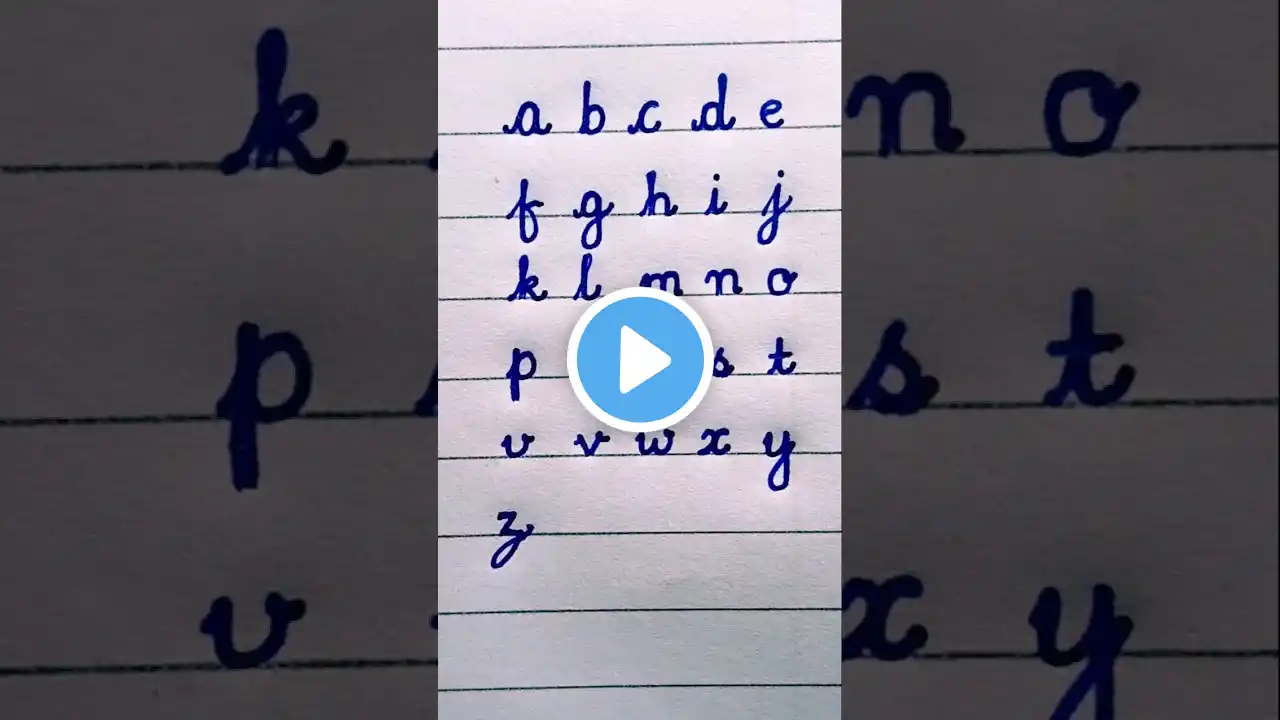 a b c d e
f g h i j
k l m n o
p s t
v v w x y
z